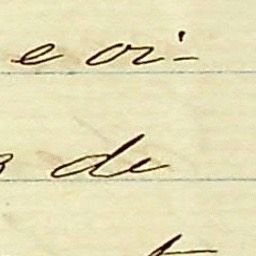 e oi-
de